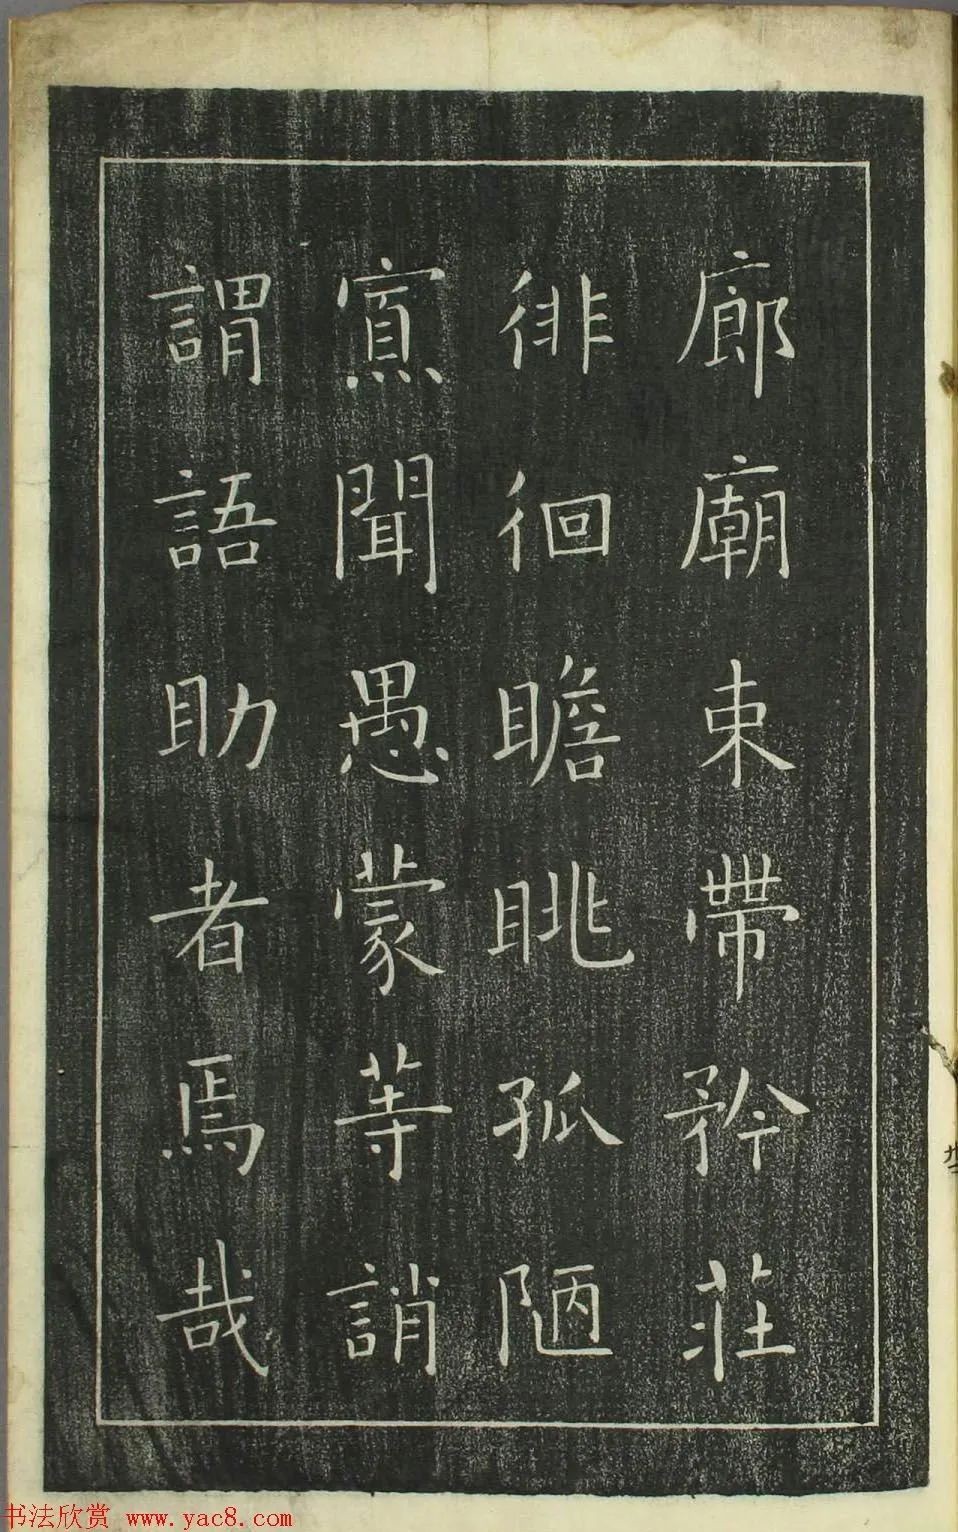 廊廟束帶矜莊
徘徊瞻眺孤陋
寡聞愚蒙等誚
謂語助者焉哉
书法欣赏 www.yac8.com